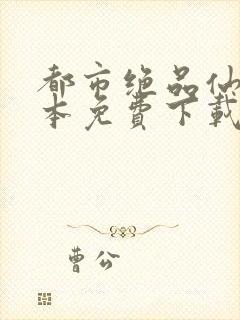 都市绝品仙
本免費下載
曹公